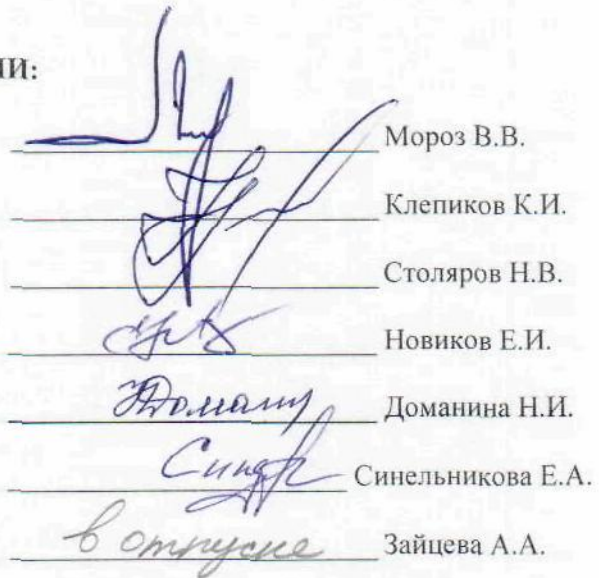 ИИ:
Мороз В.В.
Клепиков К.И.
Столяров Н.В.
Новиков Е.И.
Доманина Н.И.
Синельникова Е.А.
в отпуске Зайцева А.А.